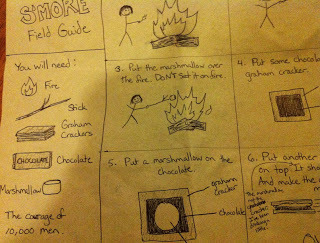 S'MORE
Field Guide
You will need:
Fire
Stick
Graham
Crackers
CHOCOLATE
Chocolate
Marshmallow
The courage of
10,000 men.
3. Put the marshmallow over
the fire. DON'T set it on fire.
4. Put some choco
graham cracker.
5. Put a marshmallow on the
chocolate.
graham
cracker
chocolate
6. Put another
on top. It sho
And make the